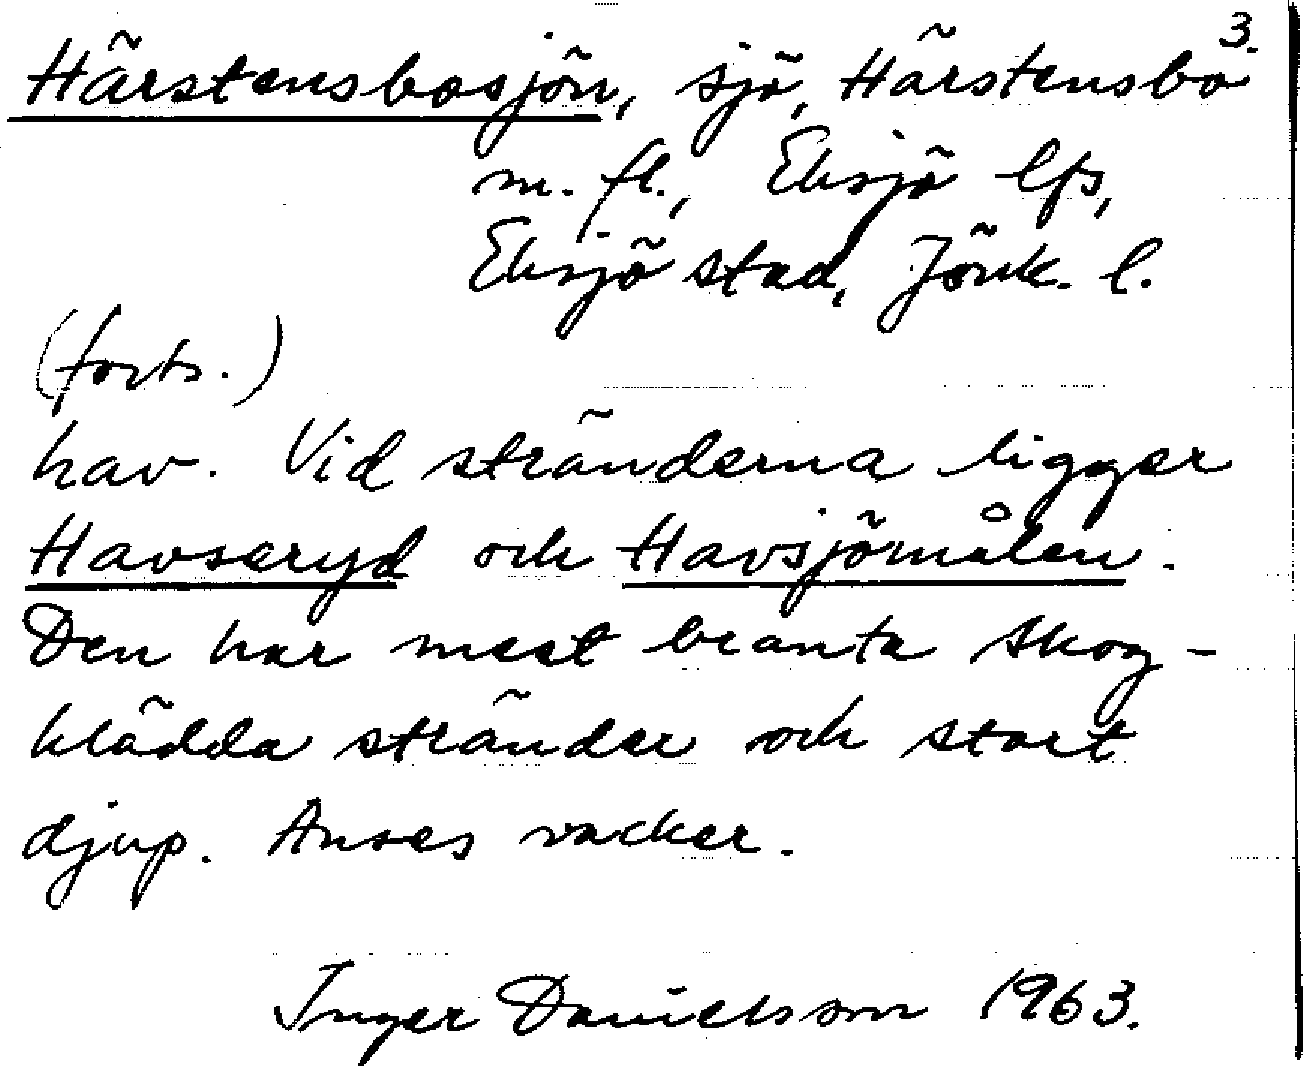 3.
Härstensbosjön, sjö, Härstensbo
m. fl., Eksjö lfs,
Eksjö stad, Jönk. l.
(forts.)
hav. Vid stränderna ligger
Havseryd och Havsjömålen.
Den har mest branta skog-
klädda stränder och stort
djup. Anses vacker.
Inger Danielsson 1963.